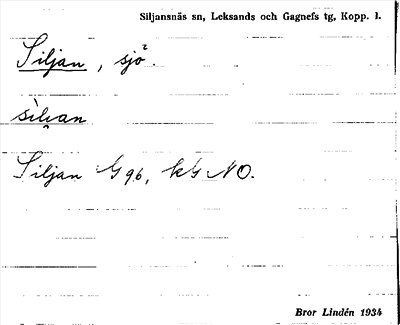 Siljansnäs sn, Leksands och Gagnefs tg, Kopp. l.
Siljan, sjö².
sìli̯an
Siljan G 96, kG NO.
Bror Lindén 1934